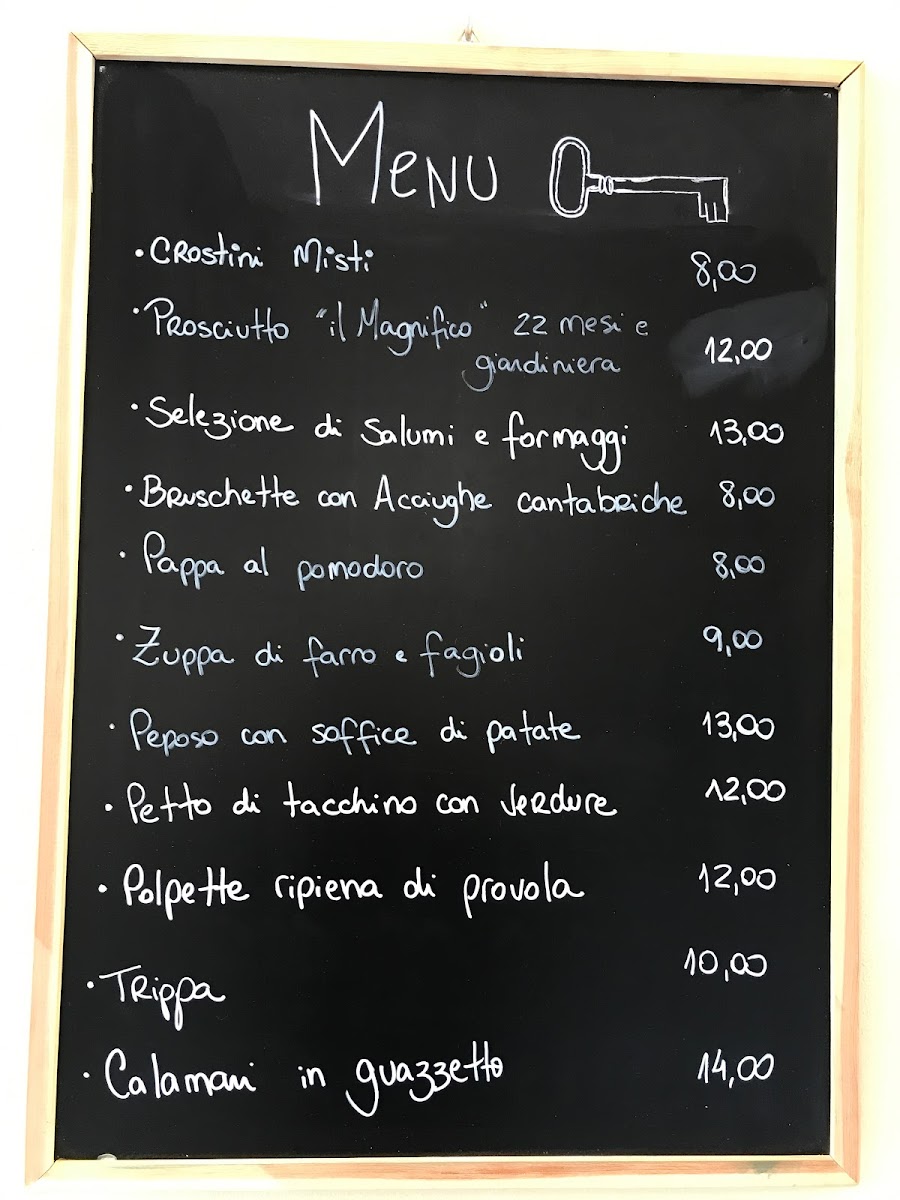 Menu
• Crostini Misti 8,00
• Prosciutto "il Magnifico" 22 mesi e
giardiniera 12,00
• Selezione di Salumi e formaggi 13,00
• Bruschette con Acciughe cantabriche 8,00
• Pappa al pomodoro 8,00
• Zuppa di farro e fagioli 9,00
• Peposo con soffice di patate 13,00
• Petto di tacchino con verdure 12,00
• Polpette ripiena di provola 12,00
• Trippa 10,00
• Calamari in guazzetto 14,00